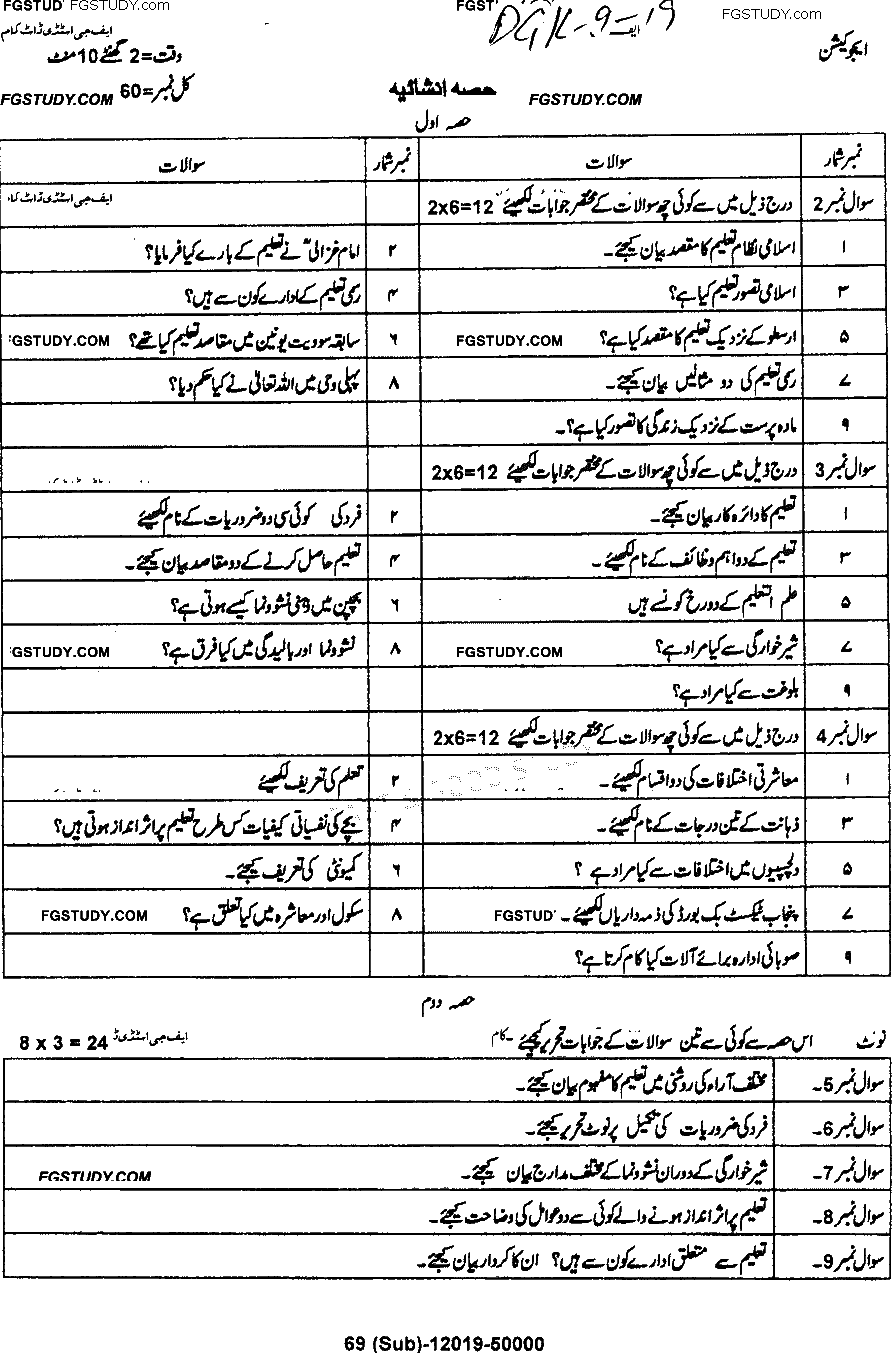 FGSTUD' FGSTUDY.com FGST' DGK-9-ایف-19 FGSTUDY.COM
ایف جی اسٹڈی ڈاٹ کام
ایجوکیشن
وقت=2 گھنٹے 10 منٹ
حصہ انشائیہ
کل نمبر=60
FGSTUDY.COM FGSTUDY.COM
حصہ اول
نمبر شمار سوالات نمبر شمار سوالات
سوال نمبر 2 درج ذیل میں سے کوئی چھ سوالات کے مختصر جوابات لکھیئے 2x6=12 ایف جی اسٹڈی ڈاٹ کا
۱ اسلامی نظام تعلیم کا مقصد بیان کیجئے۔ ۲ امام غزالیؒ نے تعلیم کے بارے کیا فرمایا؟
۳ اسلامی تصور تعلیم کیا ہے؟ ۴ رسمی تعلیم کے ادارے کون سے ہیں؟
۵ ارسطو کے نزدیک تعلیم کا مقصد کیا ہے؟ FGSTUDY.COM ۶ سابقہ سوویت یونین میں مقاصد تعلیم کیا تھے؟ 'GSTUDY.COM
۷ رسمی تعلیم کی دو مثالیں بیان کیجئے۔ ۸ پہلی وحی میں اللہ تعالیٰ نے کیا حکم دیا؟
۹ مادہ پرست کے نزدیک زندگی کا تصور کیا ہے؟۔
سوال نمبر 3 درج ذیل میں سے کوئی چھ سوالات کے مختصر جوابات لکھیئے 2x6=12
۱ تعلیم کا دائرہ کار بیان کیجئے۔ ۲ فرد کی کوئی سی دو ضروریات کے نام لکھیئے
۳ تعلیم کے دو اہم وظائف کے نام لکھیئے۔ ۴ تعلیم حاصل کرنے کے دو مقاصد بیان کیجئے۔
۵ علم التعلیم کے دو رخ کونسے ہیں ۶ بچپن میں ذہنی نشوونما کیسے ہوتی ہے؟
۷ شیر خوارگی سے کیا مراد ہے؟ FGSTUDY.COM ۸ نشوونما اور بالیدگی میں کیا فرق ہے؟ 'GSTUDY.COM
۹ بلوغت سے کیا مراد ہے؟
سوال نمبر 4 درج ذیل میں سے کوئی چھ سوالات کے مختصر جوابات لکھیئے 2x6=12
۱ معاشرتی اختلافات کی دو اقسام لکھیئے۔ ۲ تعلم کی تعریف لکھیئے
۳ ذہانت کے تین درجات کے نام لکھیئے۔ ۴ بچے کی نفسیاتی کیفیات کس طرح تعلیم پر اثر انداز ہوتی ہیں؟
۵ دلچسپیوں میں اختلافات سے کیا مراد ہے ؟ ۶ کمیونٹی کی تعریف کیجئے۔
۷ پنجاب ٹیکسٹ بک بورڈ کی ذمہ داریاں لکھیئے۔ FGSTUD' ۸ سکول اور معاشرہ میں کیا تعلق ہے؟ FGSTUDY.COM
۹ صوبائی ادارہ برائے آلات کیا کام کرتا ہے؟
حصہ دوم
نوٹ اس حصہ سے کوئی سے تین سوالات کے جوابات تحریر کیجئے۔ کام ایف جی اسٹڈی ڈ 8 x 3 = 24
سوال نمبر 5۔ مختلف آراء کی روشنی میں تعلیم کا مفہوم بیان کیجئے۔
سوال نمبر 6۔ فرد کی ضروریات کی تکمیل پر نوٹ تحریر کیجئے۔
سوال نمبر 7۔ شیر خوارگی کے دوران نشوونما کے مختلف مدارج بیان کیجئے۔ FGSTUDY.COM
سوال نمبر 8۔ تعلیم پر اثر انداز ہونے والے کوئی سے دو عوامل کی وضاحت کیجئے۔
سوال نمبر 9۔ تعلیم سے متعلق ادارے کون سے ہیں؟ ان کا کردار بیان کیجئے۔
69 (Sub)-12019-50000